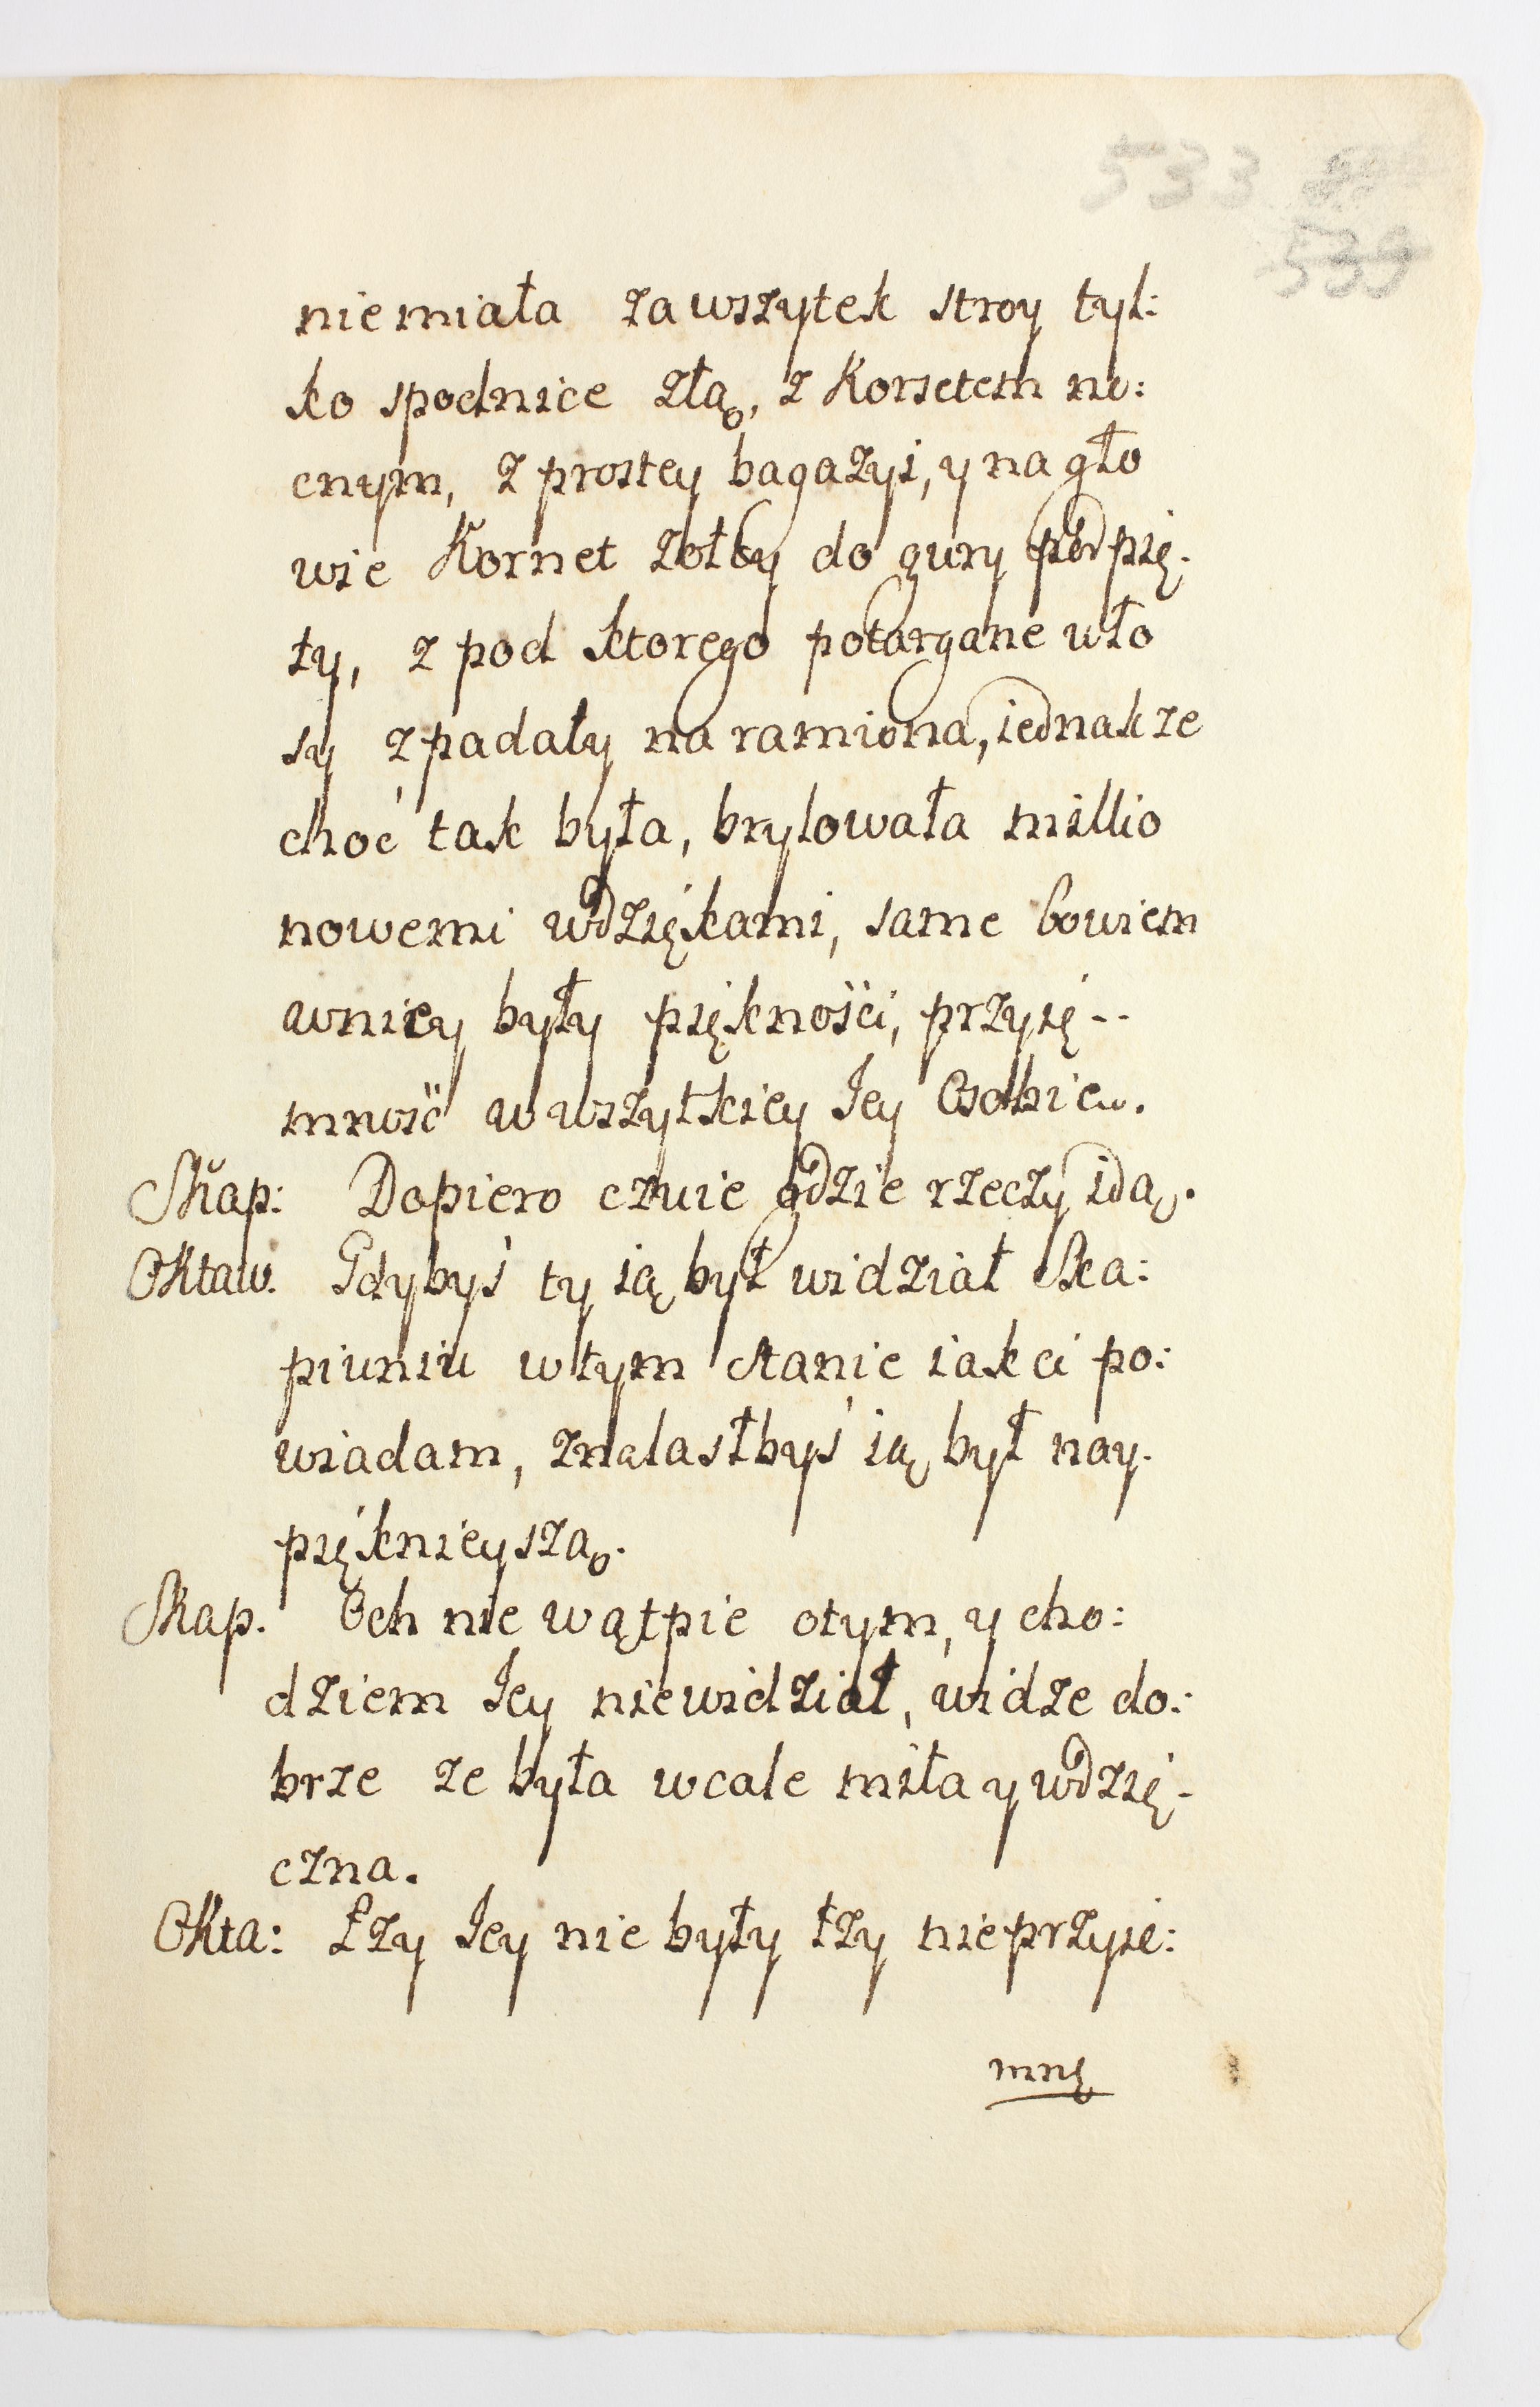 533
539
niemiała zawszytek stroy tyl:
ko spodnice złą, z Korsetem no:
cnym, z prostey bagazyi, y na gło
wie Kornet zołty do gury podpię.
ty, z pod ktorego potargane wło
sy zpadały na ramiona, iednakze
choć tak była, brylowała millio
nowemi wdziękami, same bowiem
wniey były piękności, przyię--
mność wwszytkiey Iey Osobie.
Skap: Dopiero czuie gdzie rzeczy idą.
Oktaw. Gdybyś ty ią był widział Ska:
piuniu wtym stanie iak ci po:
wiadam, znalastbyś ią był nay.
pięknieyszą.
Skap. Och nie wątpie otym, y cho:
dziem Iey niewidział, widze do:
brze ze była wcale miła y wdzię-
czna.
Okta: Łzy Iey nie były łzy nieprzyię:
mnę